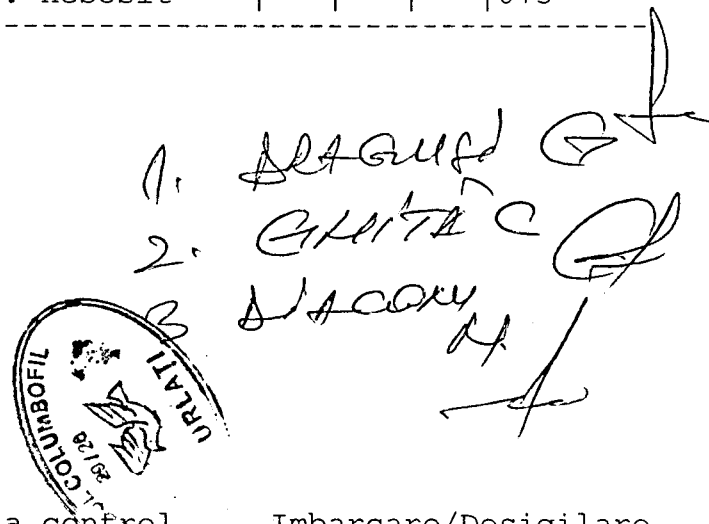 1. DRAGUSI G
2. GHITĂ C
3 DIACONU
M.
COLUMBOFIL
URLATI
29/28
a control Imbarcare/Desigilare